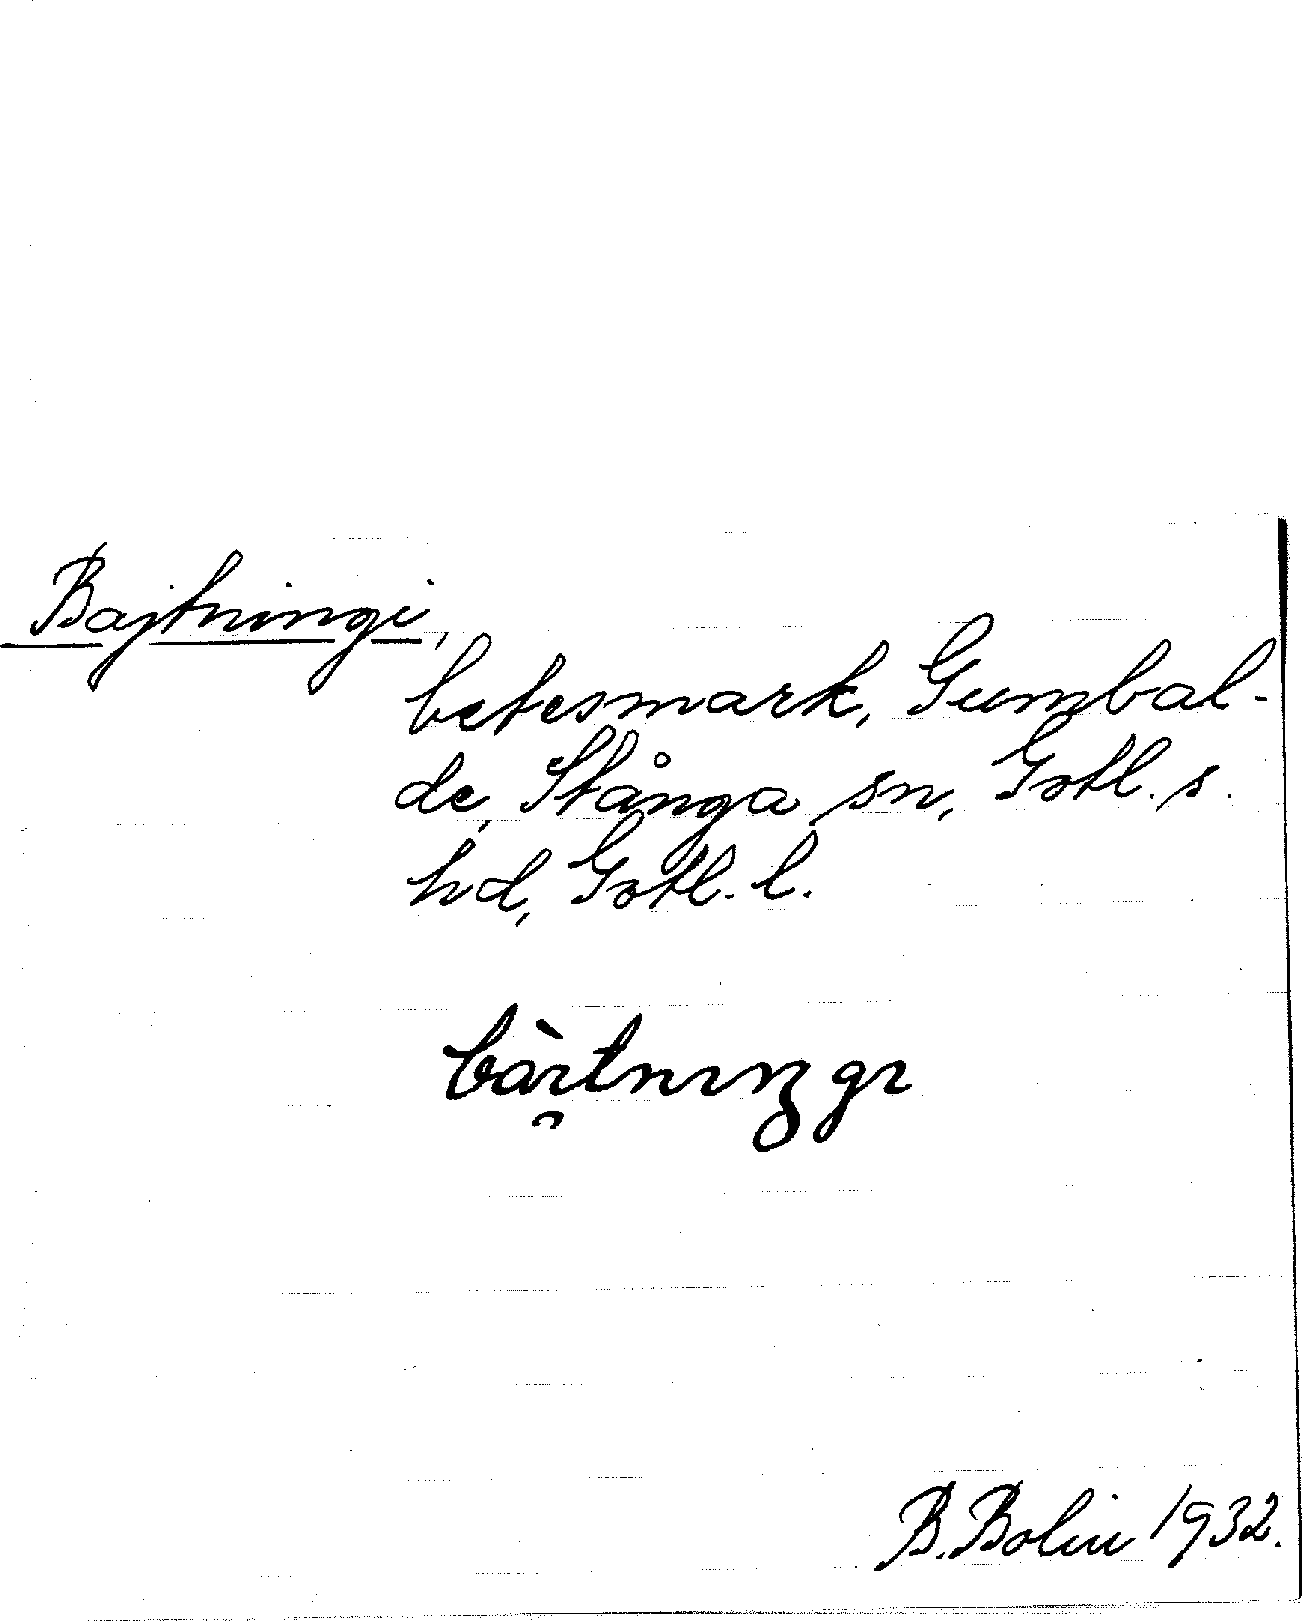 Bajtningi,
betesmark, Gumbal-
de, Stånga sn, Gotl. s.
hd, Gotl. l.
bàɪ̯tnɪŋgɪ
B. Bolin 1932.